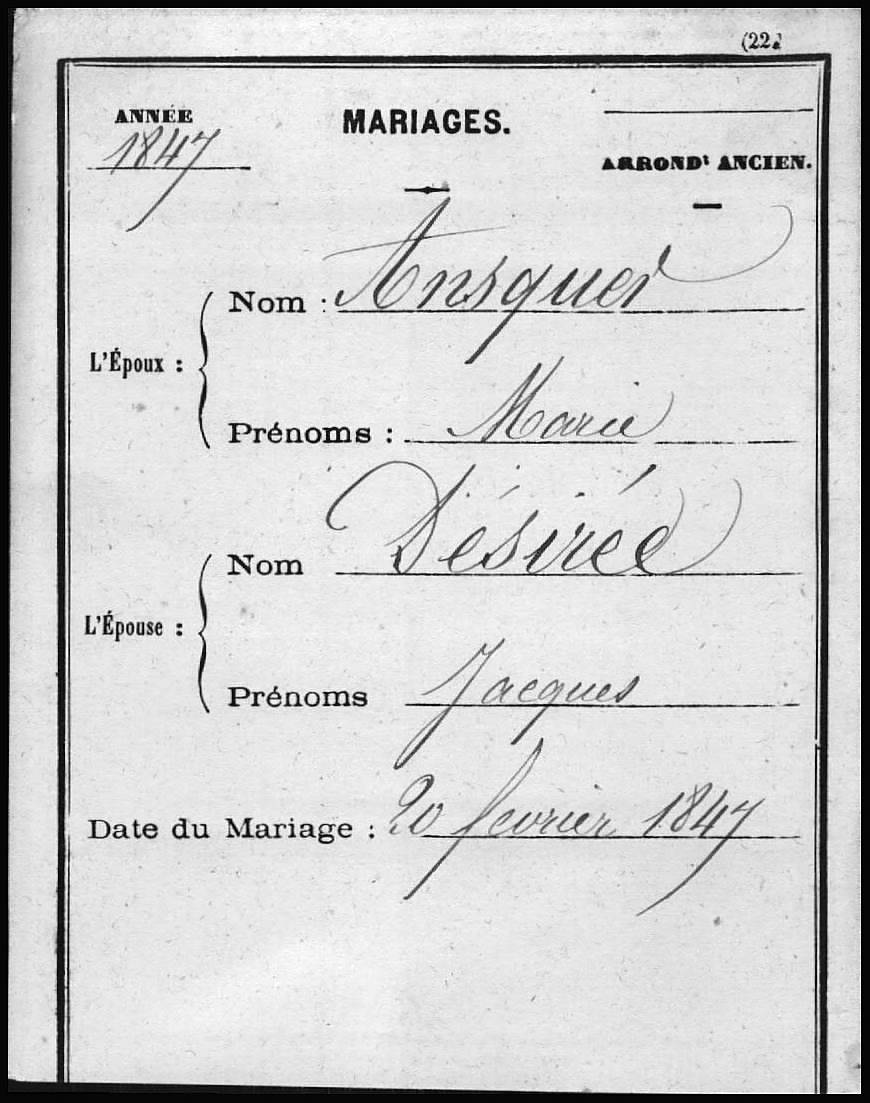 (22)
ANNÉE
MARIAGES.
1847
ARRONDt ANCIEN.
L'Époux :
Nom : Ansquer
Prénoms : Marie
L'Épouse :
Nom Désirée
Prénoms Jacques
Date du Mariage : 20 février 1847